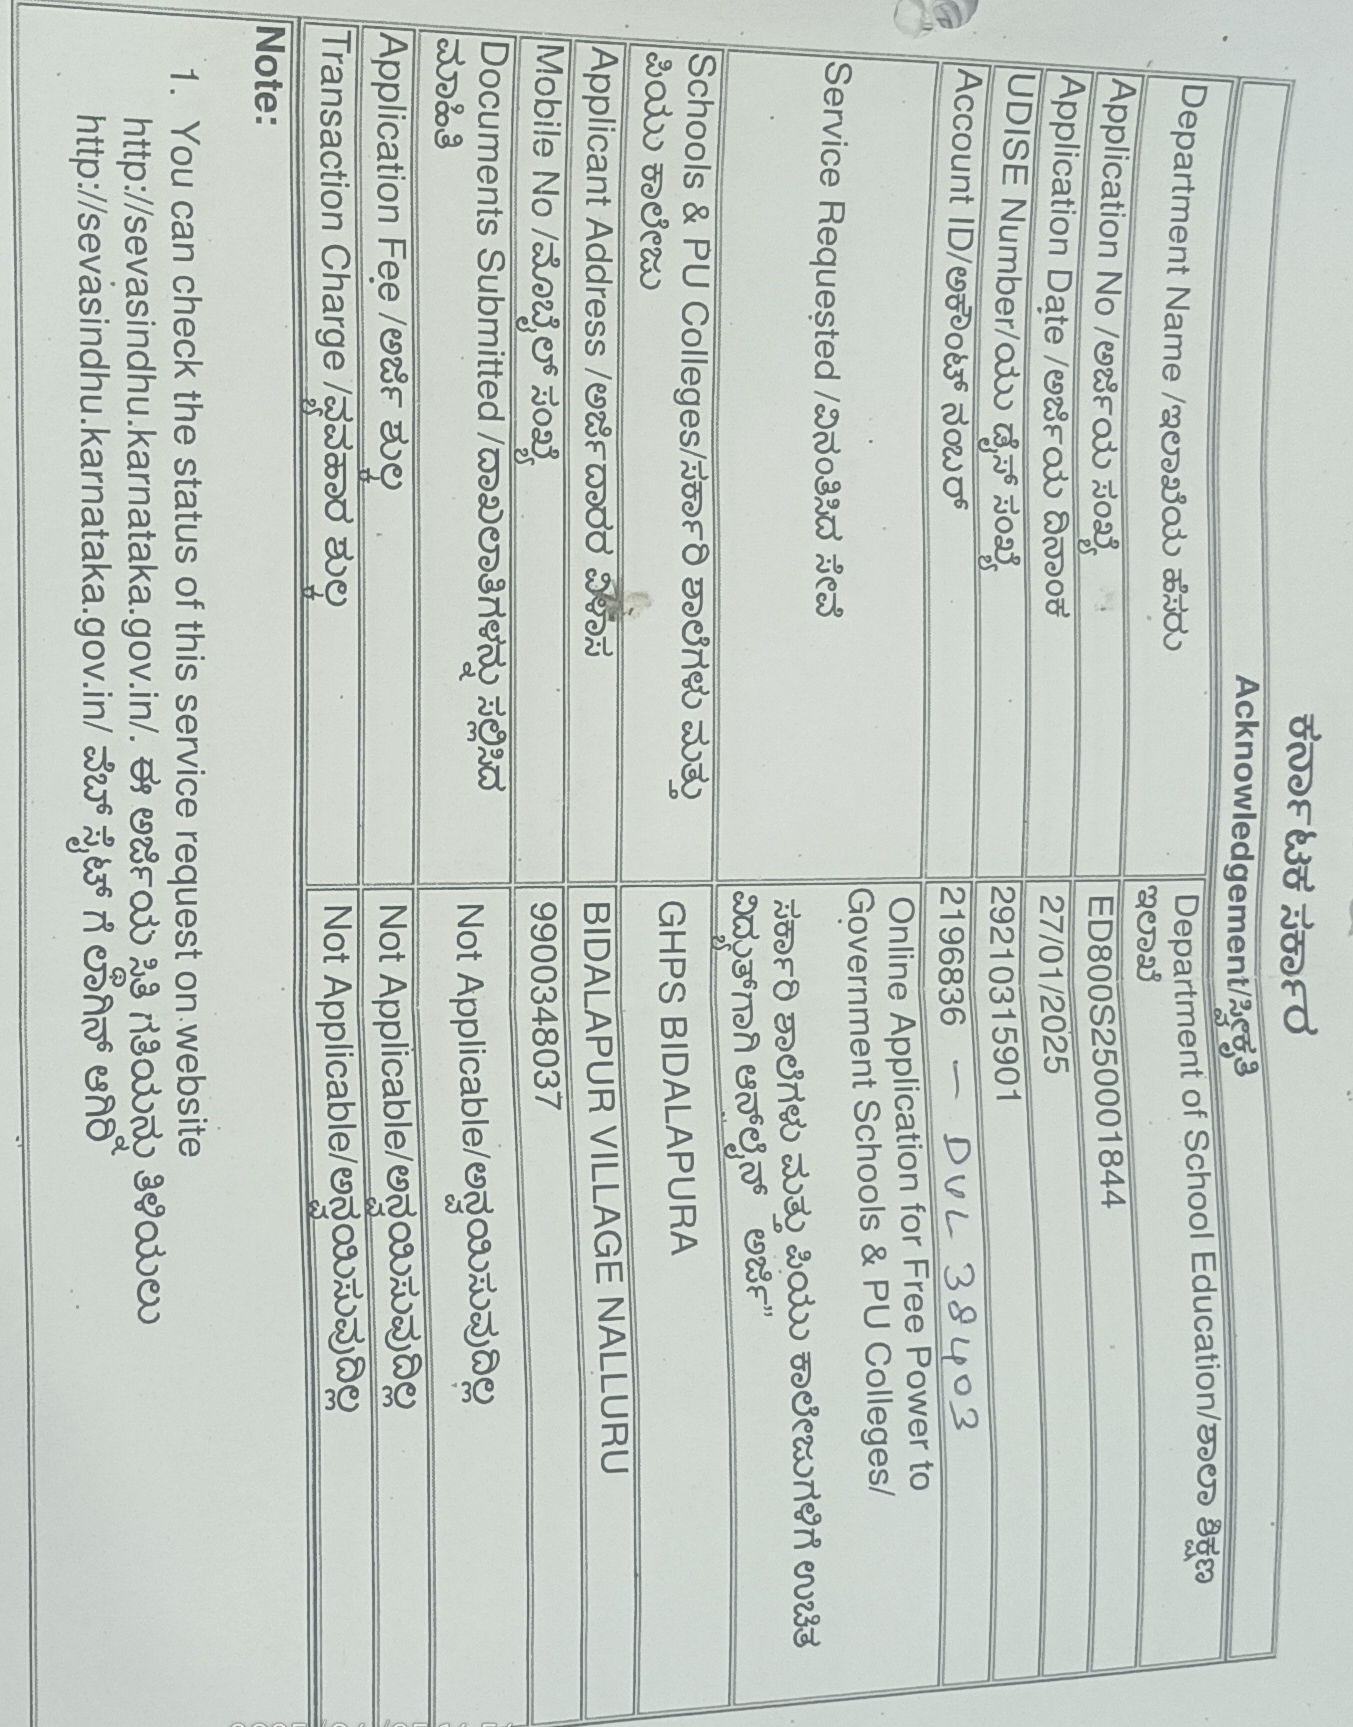 ಕರ್ನಾಟಕ ಸರ್ಕಾರ
Acknowledgement/ಸ್ವೀಕೃತಿ
Department Name /ಇಲಾಖೆಯ ಹೆಸರು
Department of School Education/ಶಾಲಾ ಶಿಕ್ಷಣ
ಇಲಾಖೆ
Application No /ಅರ್ಜಿಯ ಸಂಖ್ಯೆ
ED800S250001844
Application Date /ಅರ್ಜಿಯ ದಿನಾಂಕ
27/01/2025
UDISE Number/ಯು ಡೈಸ್ ಸಂಖ್ಯೆ
29210315901
Account ID/ಅಕೌಂಟ್ ನಂಬರ್
2196836 – DVL 38403
Service Requested /ವಿನಂತಿಸಿದ ಸೇವೆ
Online Application for Free Power to
Government Schools & PU Colleges/
ಸರ್ಕಾರಿ ಶಾಲೆಗಳು ಮತ್ತು ಪಿಯು ಕಾಲೇಜುಗಳಿಗೆ ಉಚಿತ
ವಿದ್ಯುತ್‌ಗಾಗಿ ಆನ್‌ಲೈನ್ ಅರ್ಜಿ"
Schools & PU Colleges/ಸರ್ಕಾರಿ ಶಾಲೆಗಳು ಮತ್ತು
ಪಿಯು ಕಾಲೇಜು
GHPS BIDALAPURA
Applicant Address /ಅರ್ಜಿದಾರರ ವಿಳಾಸ
BIDALAPUR VILLAGE NALLURU
Mobile No /ಮೊಬೈಲ್ ಸಂಖ್ಯೆ
9900348037
Documents Submitted /ದಾಖಲಾತಿಗಳನ್ನು ಸಲ್ಲಿಸಿದ
ಮಾಹಿತಿ
Not Applicable/ಅನ್ವಯಿಸುವುದಿಲ್ಲ
Application Fee /ಅರ್ಜಿ ಶುಲ್ಕ
Not Applicable/ಅನ್ವಯಿಸುವುದಿಲ್ಲ
Transaction Charge /ವ್ಯವಹಾರ ಶುಲ್ಕ
Not Applicable/ಅನ್ವಯಿಸುವುದಿಲ್ಲ
Note:
1. You can check the status of this service request on website
http://sevasindhu.karnataka.gov.in/. ಈ ಅರ್ಜಿಯ ಸ್ಥಿತಿ ಗತಿಯನ್ನು ತಿಳಿಯಲು
http://sevasindhu.karnataka.gov.in/ ವೆಬ್ ಸೈಟ್ ಗೆ ಲಾಗಿನ್ ಆಗಿರಿ